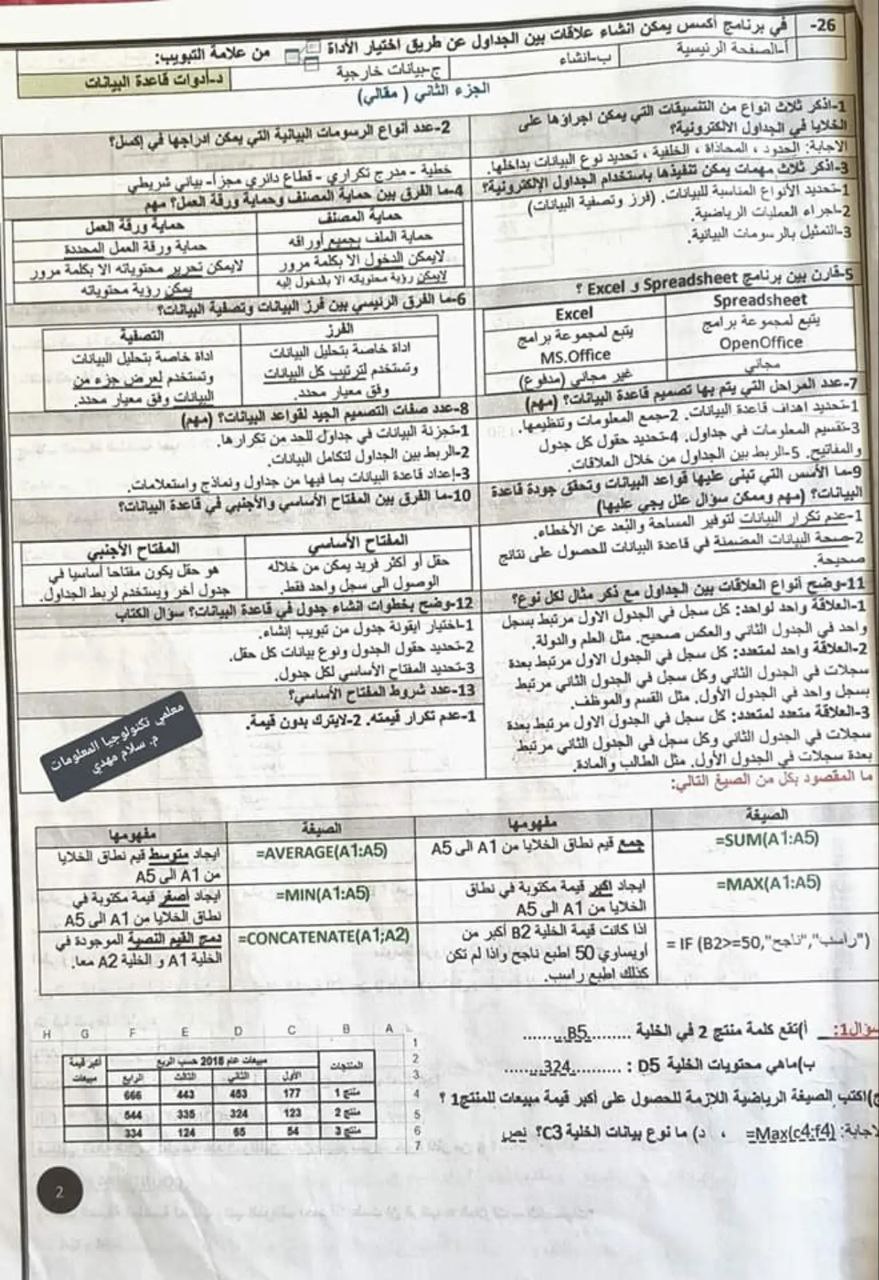 26- في برنامج أكسس يمكن انشاء علاقات بين الجداول عن طريق اختيار الأداة من علامة التبويب:
أ-الصفحة الرئيسية ب-انشاء ج-بيانات خارجية د-أدوات قاعدة البيانات
الجزء الثاني ( مقالي)
1-اذكر ثلاث انواع من التنسيقات التي يمكن اجراؤها على
الخلايا في الجداول الالكترونية؟
الاجابة: الحدود ، المحاذاة ، الخلفية ، تحديد نوع البيانات بداخلها.
2-عدد أنواع الرسومات البيانية التي يمكن ادراجها في إكسل؟
خطية - مدرج تكراري - قطاع دائري مجزأ- بياني شريطي
3-اذكر ثلاث مهمات يمكن تنفيذها باستخدام الجداول الإلكترونية؟
1-تحديد الأنواع المناسبة للبيانات. (فرز وتصفية البيانات)
2-اجراء العمليات الرياضية.
3-التمثيل بالرسومات البيانية.
4-ما الفرق بين حماية المصنف وحماية ورقة العمل؟ مهم
حماية المصنف حماية ورقة العمل
حماية الملف بجميع أوراقه حماية ورقة العمل المحددة
لايمكن الدخول الا بكلمة مرور لايمكن تحرير محتوياته الا بكلمة مرور
لايمكن رؤية محتوياته الا بالدخول إليه يمكن رؤية محتوياته
5-قارن بين برنامج Spreadsheet و Excel ؟
Spreadsheet Excel
يتبع لمجموعة برامج OpenOffice يتبع لمجموعة برامج MS.Office
مجاني غير مجاني (مدفوع)
6-ما الفرق الرئيسي بين فرز البيانات وتصفية البيانات؟
الفرز التصفية
اداة خاصة بتحليل البيانات اداة خاصة بتحليل البيانات
وتستخدم لترتيب كل البيانات وتستخدم لعرض جزء من
وفق معيار محدد. البيانات وفق معيار محدد.
7-عدد المراحل التي يتم بها تصميم قاعدة البيانات؟ (مهم)
1-تحديد اهداف قاعدة البيانات. 2-جمع المعلومات وتنظيمها.
3-تقسيم المعلومات في جداول. 4-تحديد حقول كل جدول
والمفاتيح. 5-الربط بين الجداول من خلال العلاقات.
8-عدد صفات التصميم الجيد لقواعد البيانات؟ (مهم)
1-تجزئة البيانات في جداول للحد من تكرارها.
2-الربط بين الجداول لتكامل البيانات.
3-إعداد قاعدة البيانات بما فيها من جداول ونماذج واستعلامات.
9-ما الأسس التي تبنى عليها قواعد البيانات وتحقق جودة قاعدة
البيانات؟ (مهم وممكن سؤال علل يجي عليها)
1-عدم تكرار البيانات لتوفير المساحة والبُعد عن الأخطاء.
2-صحة البيانات المضمنة في قاعدة البيانات للحصول على نتائج
صحيحة.
10-ما الفرق بين المفتاح الأساسي والأجنبي في قاعدة البيانات؟
المفتاح الأساسي المفتاح الأجنبي
حقل أو أكثر فريد يمكن من خلاله هو حقل يكون مفتاحا أساسيا في
الوصول الى سجل واحد فقط. جدول آخر ويستخدم لربط الجداول.
11-وضح أنواع العلاقات بين الجداول مع ذكر مثال لكل نوع؟
1-العلاقة واحد لواحد: كل سجل في الجدول الاول مرتبط بسجل
واحد في الجدول الثاني والعكس صحيح. مثل العلم والدولة.
2-العلاقة واحد لمتعدد: كل سجل في الجدول الاول مرتبط بعدة
سجلات في الجدول الثاني وكل سجل في الجدول الثاني مرتبط
بسجل واحد في الجدول الأول. مثل القسم والموظف.
3-العلاقة متعدد لمتعدد: كل سجل في الجدول الاول مرتبط بعدة
سجلات في الجدول الثاني وكل سجل في الجدول الثاني مرتبط
بعدة سجلات في الجدول الأول. مثل الطالب والمادة.
12-وضح بخطوات انشاء جدول في قاعدة البيانات؟ سؤال الكتاب
1-اختيار ايقونة جدول من تبويب إنشاء.
2-تحديد حقول الجدول ونوع بيانات كل حقل.
3-تحديد المفتاح الأساسي لكل جدول.
13-عدد شروط المفتاح الأساسي؟
1-عدم تكرار قيمته. 2-لايترك بدون قيمة.
معلمي تكنولوجيا المعلومات
م. سلام مهدي
ما المقصود بكل من الصيغ التالي:
الصيغة مفهومها الصيغة مفهومها
=SUM(A1:A5) جمع قيم نطاق الخلايا من A1 الى A5 =AVERAGE(A1:A5) ايجاد متوسط قيم نطاق الخلايا من A1 الى A5
=MAX(A1:A5) ايجاد اكبر قيمة مكتوبة في نطاق الخلايا من A1 الى A5 =MIN(A1:A5) ايجاد أصغر قيمة مكتوبة في نطاق الخلايا من A1 الى A5
= IF (B2>=50,"ناجح","راسب") اذا كانت قيمة الخلية B2 أكبر من أويساوي 50 اطبع ناجح واذا لم تكن كذلك اطبع راسب. =CONCATENATE(A1;A2) دمج القيم النصية الموجودة في الخلية A1 و الخلية A2 معا.
سؤال1: أ)تقع كلمة منتج 2 في الخلية .......B5.......
ب)ماهي محتويات الخلية D5 : .......324.......
ج)اكتب الصيغة الرياضية اللازمة للحصول على أكبر قيمة مبيعات للمنتج1 ؟
لاجابة: =Max(c4:f4) ، د) ما نوع بيانات الخلية C3؟ نص
A B C D E F G H
1
2 المنتجات مبيعات عام 2018 حسب الربع أكبر قيمة مبيعات
3 الأول الثاني الثالث الرابع
4 منتج 1 177 453 443 666
5 منتج 2 123 324 335 544
6 منتج 3 54 65 124 334
7
2